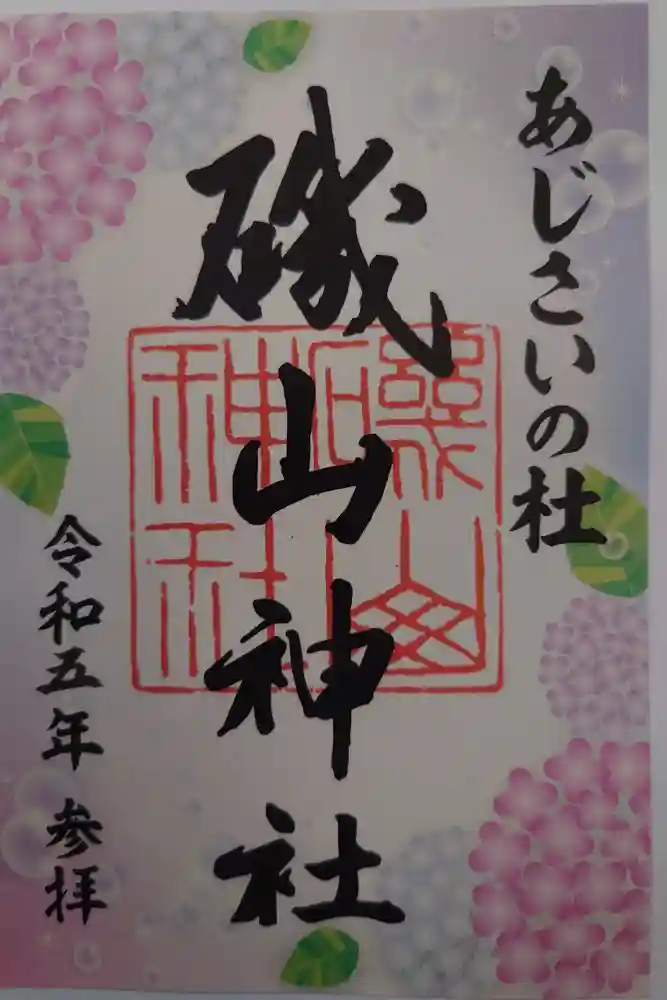 あじさいの杜
磯山神社
磯山神社
令和五年 参拝